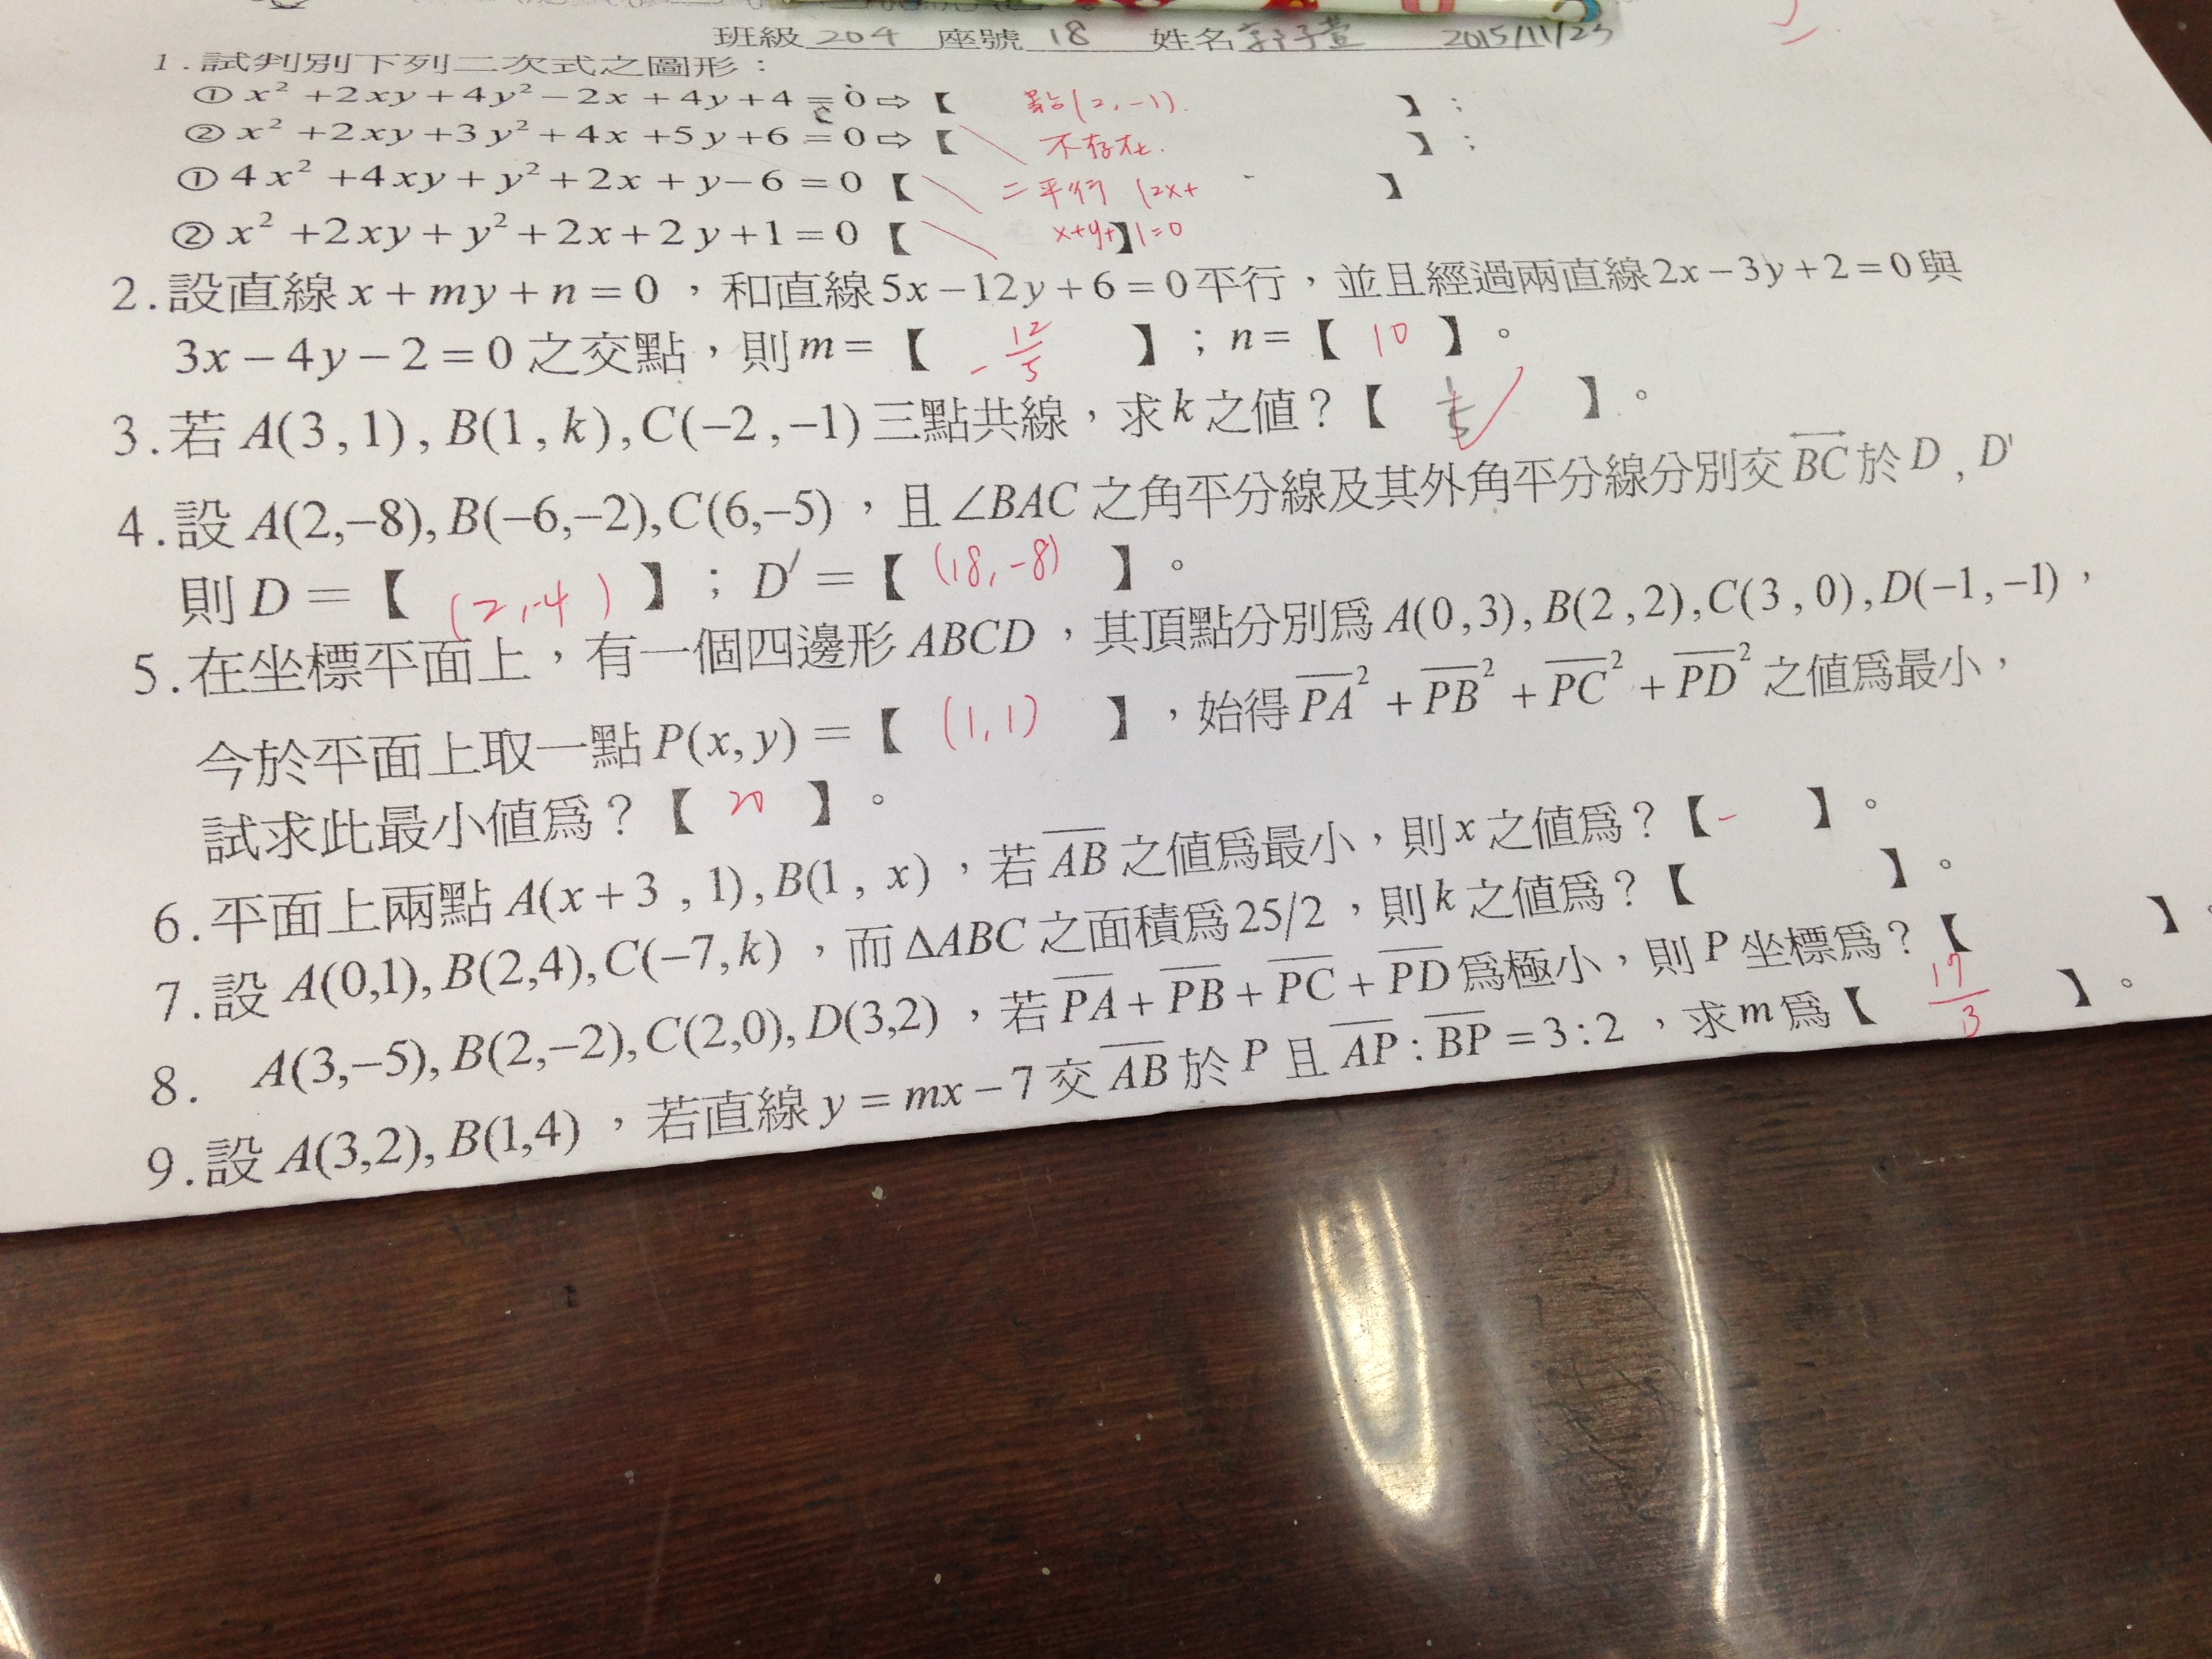 班級 204 座號 18 姓名 2015/11/23
1.試判別下列二次式之圖形：
① x² +2xy+4y²−2x+4y+4=0⇨【 點(2,-1). 】;
② x² +2xy+3y²+4x+5y+6=0⇨【 不存在. 】;
① 4x² +4xy+y²+2x+y−6=0【 二平行 (2x+ 】
② x² +2xy+y²+2x+2y+1=0【 x+y+1=0 】
2.設直線x+my+n=0，和直線5x−12y+6=0平行，並且經過兩直線2x−3y+2=0與
3x−4y−2=0之交點，則m=【 -12/5 】；n=【 10 】。
3.若A(3,1),B(1,k),C(−2,−1)三點共線，求k之值？【 1/5 】。
4.設A(2,−8),B(−6,−2),C(6,−5)，且∠BAC之角平分線及其外角平分線分別交BC於D,D'
則D=【 (2,-4) 】；D'=【 (18,-8) 】。
5.在坐標平面上，有一個四邊形ABCD，其頂點分別為A(0,3),B(2,2),C(3,0),D(−1,−1)，
今於平面上取一點P(x,y)=【 (1,1) 】，始得PA²+PB²+PC²+PD²之值為最小，
試求此最小值為？【 20 】。
6.平面上兩點A(x+3,1),B(1,x)，若AB之值為最小，則x之值為？【 - 】。
7.設A(0,1),B(2,4),C(−7,k)，而ΔABC之面積為25/2，則k之值為？【 】。
8. A(3,−5),B(2,−2),C(2,0),D(3,2)，若PA+PB+PC+PD為極小，則P坐標為？【 】。
9.設A(3,2),B(1,4)，若直線y=mx−7交AB於P且AP:BP=3:2，求m為【 17/3 】。